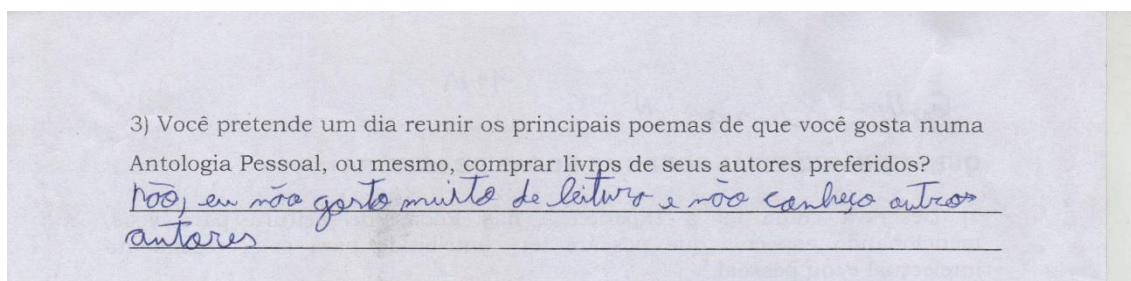 3) Você pretende um dia reunir os principais poemas de que você gosta numa
Antologia Pessoal, ou mesmo, comprar livros de seus autores preferidos?
não, eu não gosto muito de leitura e não conheço outros
autores